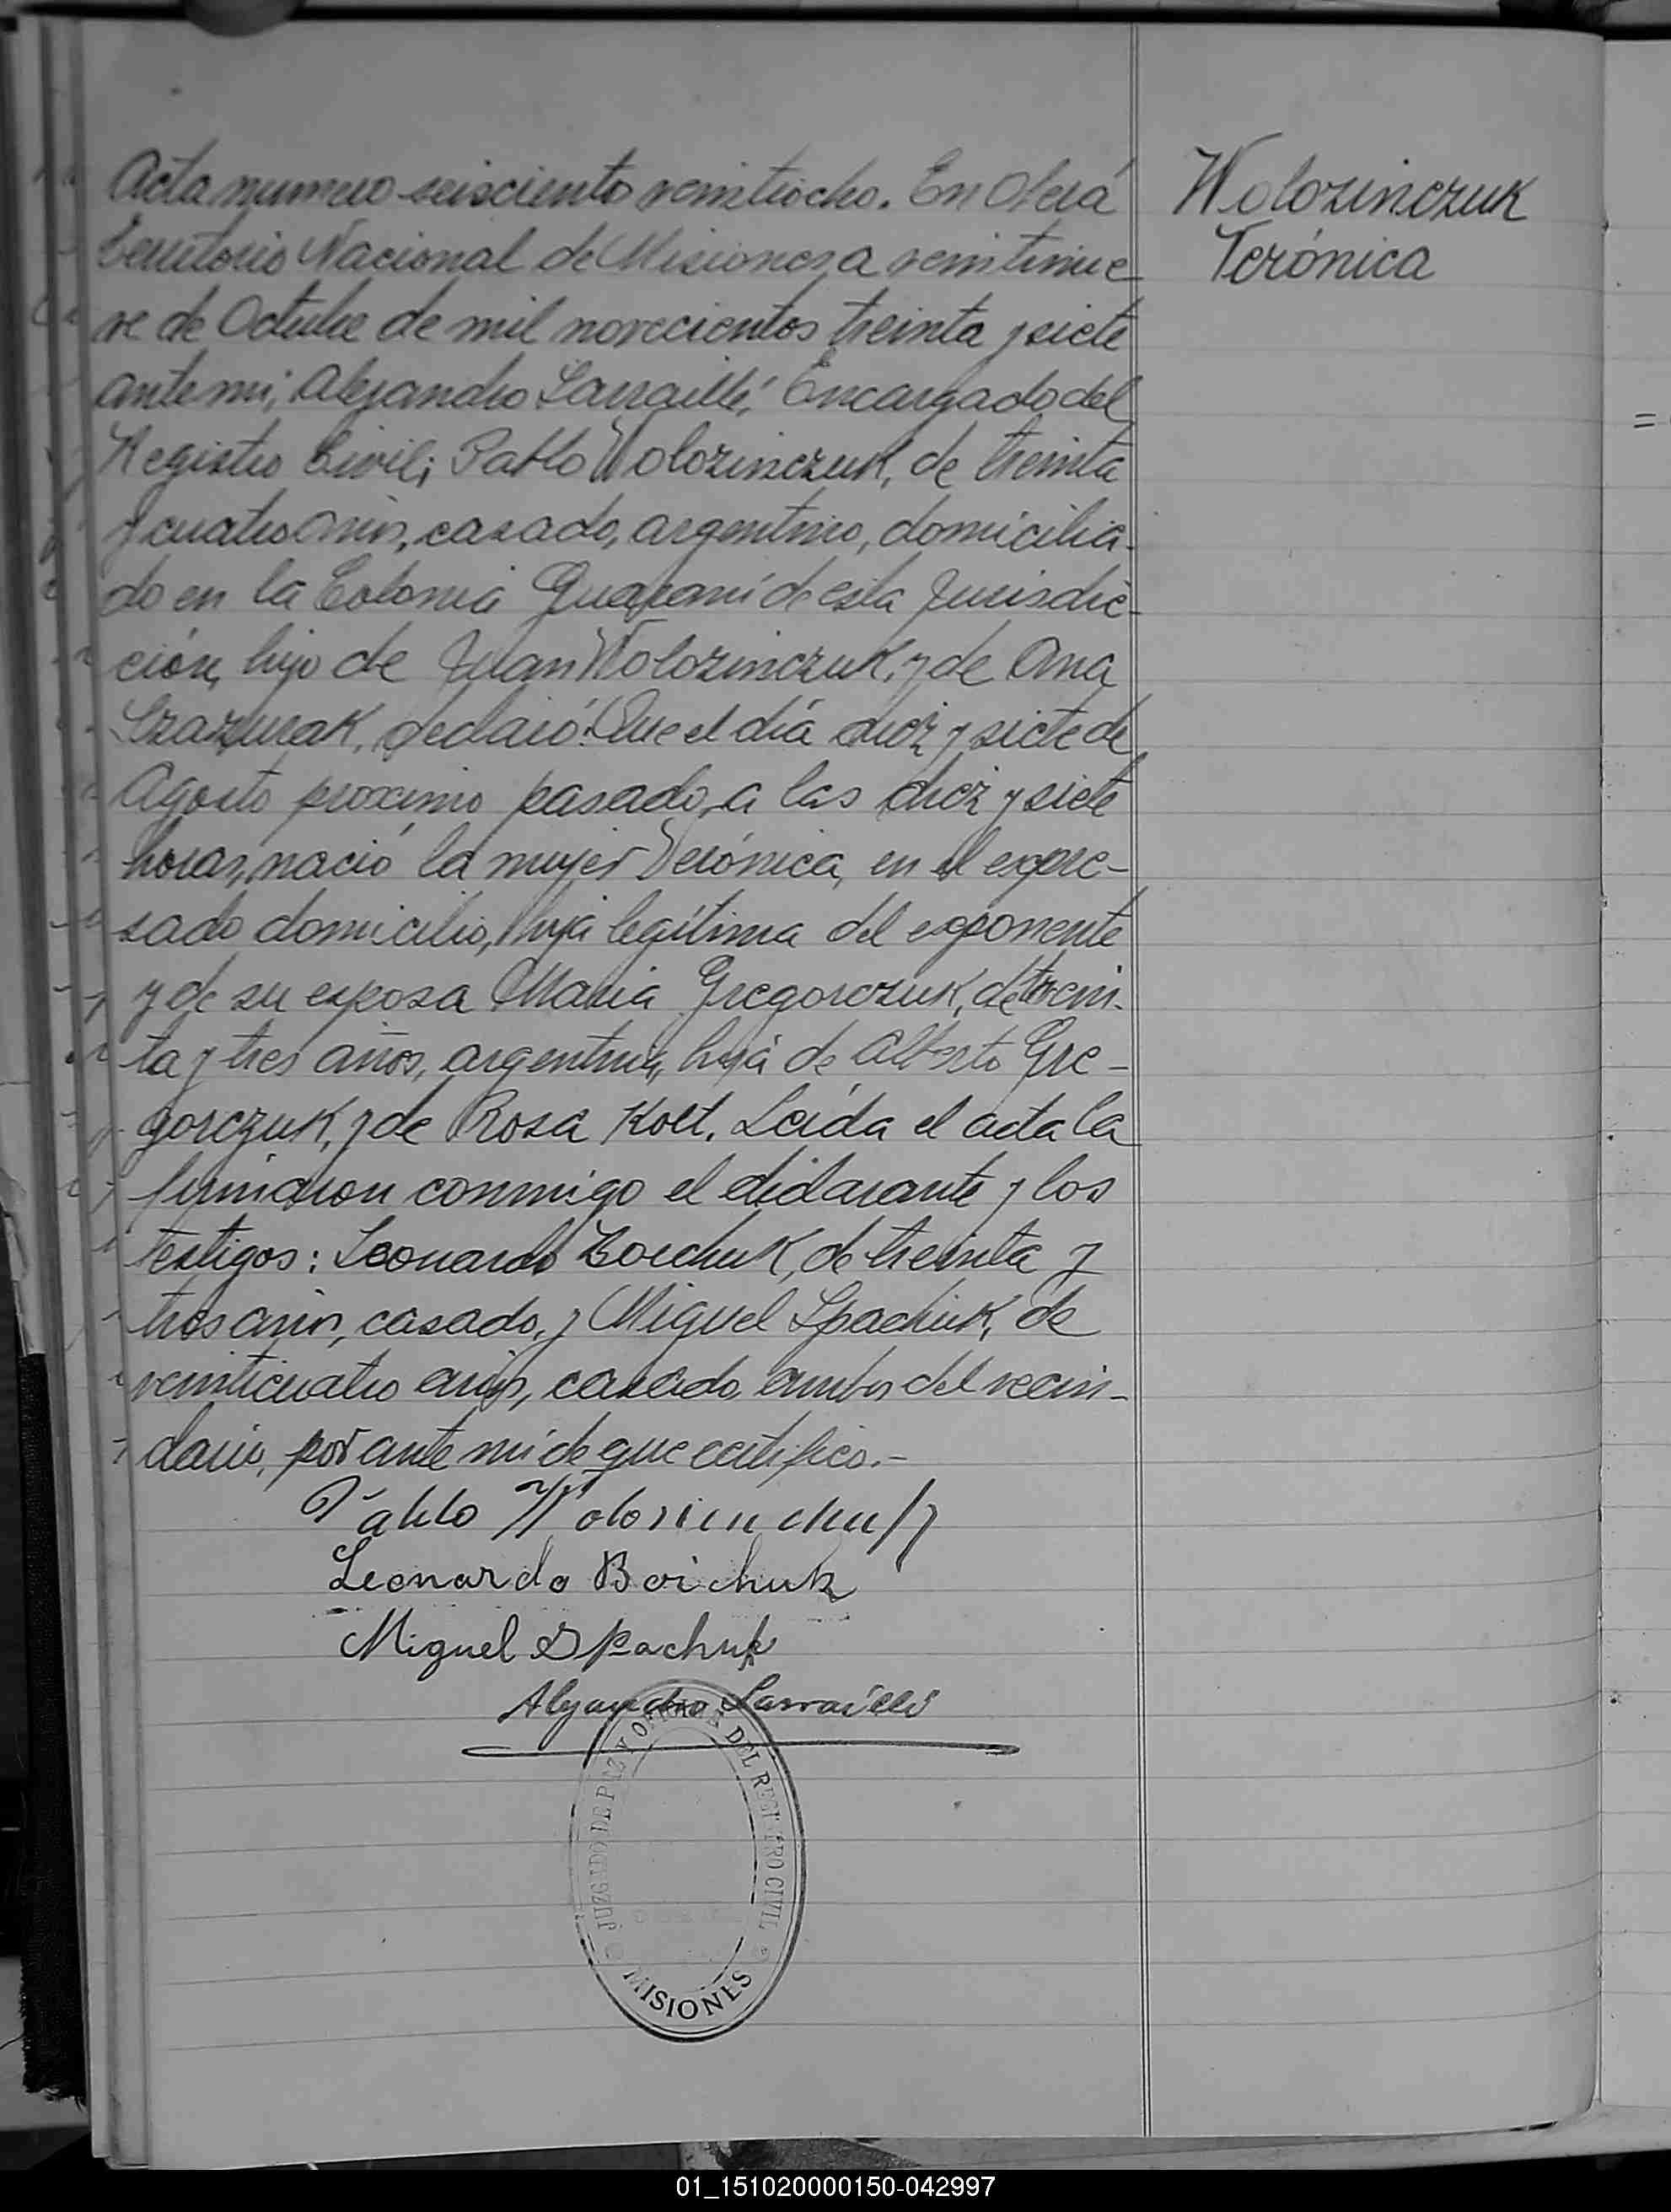 Acta numero seisciento veintiocho. En Oberá
Territorio Nacional de Misiones, a veintinue
ve de Octubre de mil novecientos treinta y siete
ante mi, Alejandro Sarraillé, Encargado del
Registro Civil; Pablo Wolozinczuk, de treinta
y cuatro años, casado, argentino, domicilia-
do en la Colonia Guaraní de esta Jurisdic-
ción, hijo de Juan Wolozinczuk, y de Ana
declaró: Que el día diez y siete de
Agosto proximo pasado, a las diez y siete
horas, nació la mujer Verónica, en el expre-
sado domicilio, hija legítima del exponente
y de su esposa Maria Gregorczuk, de trein-
ta y tres años, argentina, hija de Alberto Gre-
gorczuk, y de Rosa Kolt. Leída el acta la
firmaron conmigo el declarante y los
testigos: Leonardo Boichuk, de treinta y
tres años, casado, y Miguel Spachuk, de
veinticuatro años, casado, ambos del vecin-
dario, por ante mí de que certifico.-
Pablo Wolosinchuk
Leonardo Boichuk
Miguel Spachuk
Alejandro Sarraillé
JUZGADO DE PAZ Y OFICINA DEL REGISTRO CIVIL
MISIONES
Wolozinczuk
Verónica
01_151020000150-042997